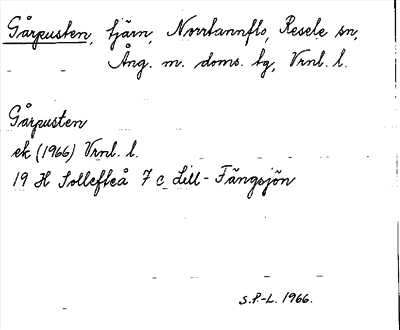 Gårpusten, tjärn, Norrtannflo, Resele sn,
Ång. m. doms. bg, Vrnl. l.
Gårpusten
ek (1966) Vrnl. l.
19 H Sollefteå 7 c Lill-Fängsjön
S.P-L. 1966.